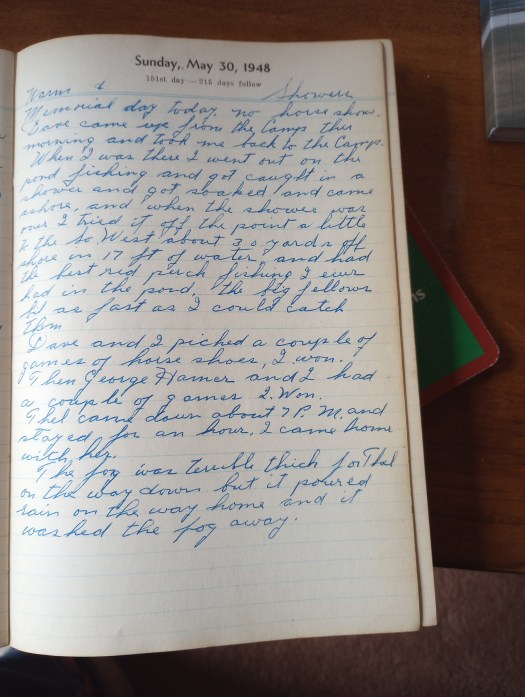 Sunday, May 30, 1948
151st day — 215 days follow
Warm & Showers
Memorial day today. no horse show.
Dave came up from the Camps this
morning and took me back to the Camps.
When I was there I went out on the
pond fishing and got caught in a
shower and got soaked and came
ashore, and when the shower was
over I tried it off the point a little
to the So. West about 30 yards off
shore on 17 ft of water, and had
the best red perch fishing I ever
had in the pond, the big fellows
bit as fast as I could catch
them
Dave and I picked a couple of
games of horse shoes, I won.
Then George Hamer and I had
a couple of games I. Won.
Thel came down about 7 P.M. and
stayed for an hour. I came home
with her.
The fog was terrible thick for Thel
on the way down but it poured
rain on the way home and it
washed the fog away.